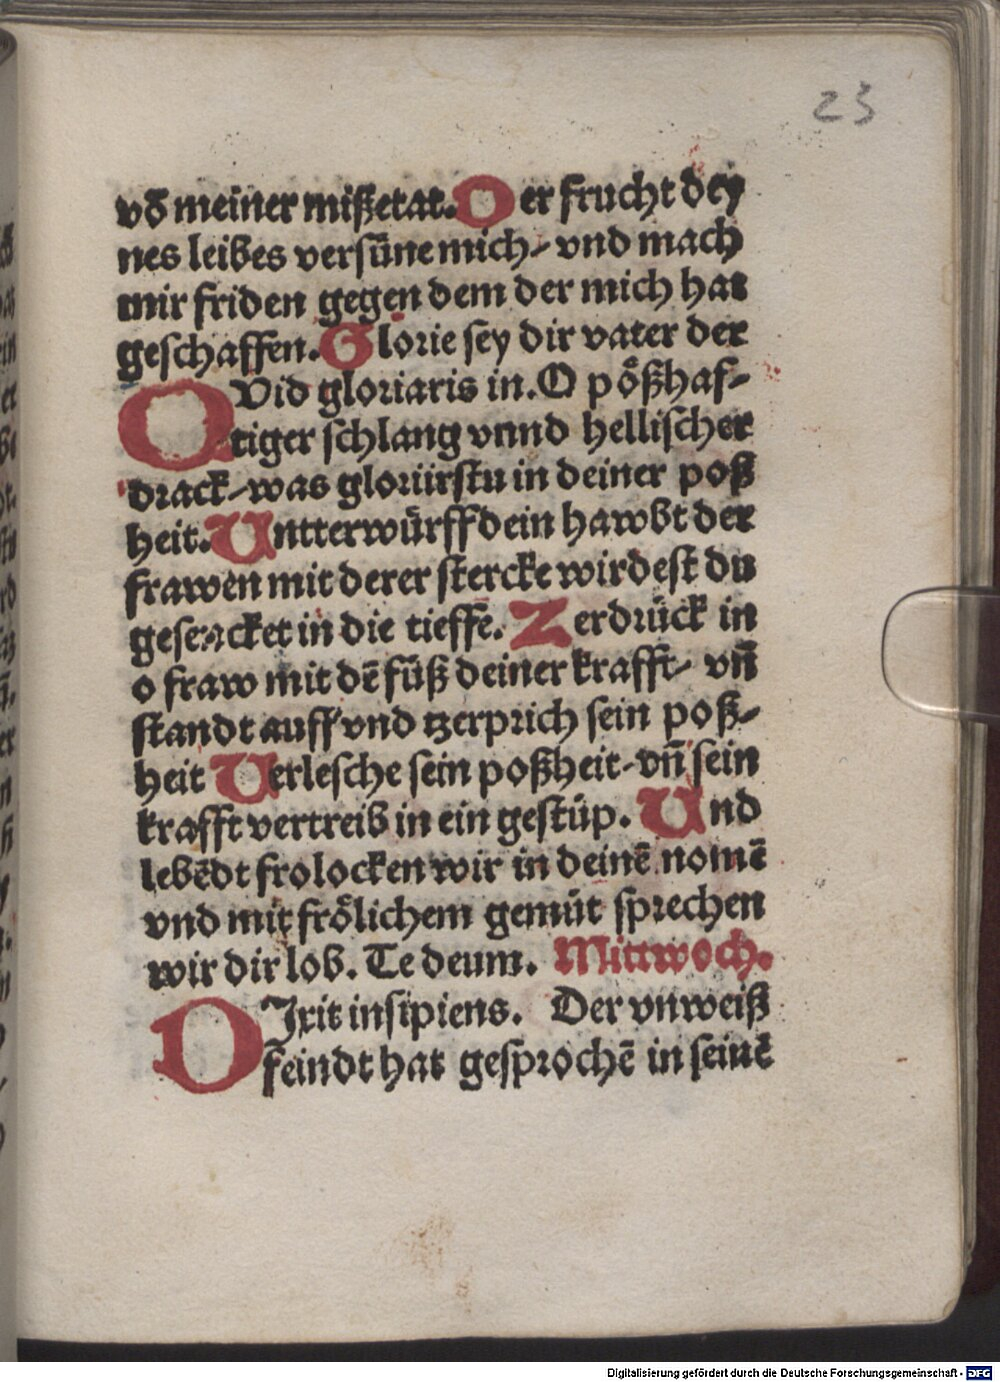 23
võ meiner mißetat. Der frucht dey
nes leibes versüne mich / vnd mach
mir friden gegen dem der mich hat
geschaffen. Glorie sey dir vater der
QVid gloriaris in. O pößhaf⸗
tiger schlang vnnd hellischer
drack / was gloriirstu in deiner poß
heit. Untterwürff dein hawbt der
frawen mit derer stercke wirdest du
gesencket in die tieffe. Zerdrück in
o fraw mit dē füß deiner krafft / vn̄
standt auff vnd tzerprich sein poß⸗
heit Verlesche sein poßheit / vn̄ sein
krafft vertreib in ein gestüp. Und
lebēdt frolocken wir in deinē nomē
vnd mit frölichem gemüt sprechen
wir dir lob. Te deum. Mittwoch.
DJxit insipiens. Der vnweiß
feindt hat gesprochē in seinē
Digitalisierung gefördert durch die Deutsche Forschungsgemeinschaft - DFG